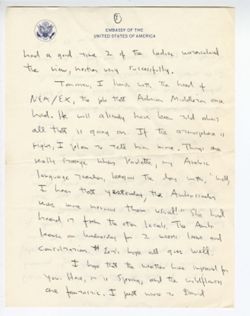 ②
EMBASSY OF THE
UNITED STATES OF AMERICA
had a good time & of the ladies
the new, very successfully.
Tomorrow, I have with the head of
NEA/EX, the job that Adrian Middleton once
had. He will already have been told about
all that is going on. If the atmosphere is
right, I plan to talk him more. Things are
really strange when Paulette, my Arabic
language teacher, began the day with, "Well,
I hear that yesterday, the Ambassador
was more nervous than usual!" She had
heard it from the other locals. The Amb
leaves on Wednesday for 2 weeks leave and
consultation. Let's hope all goes well.
I hope that the weather has improved for
you. Here, it is Spring and the wildflowers
are fantastic. I just wrote to David